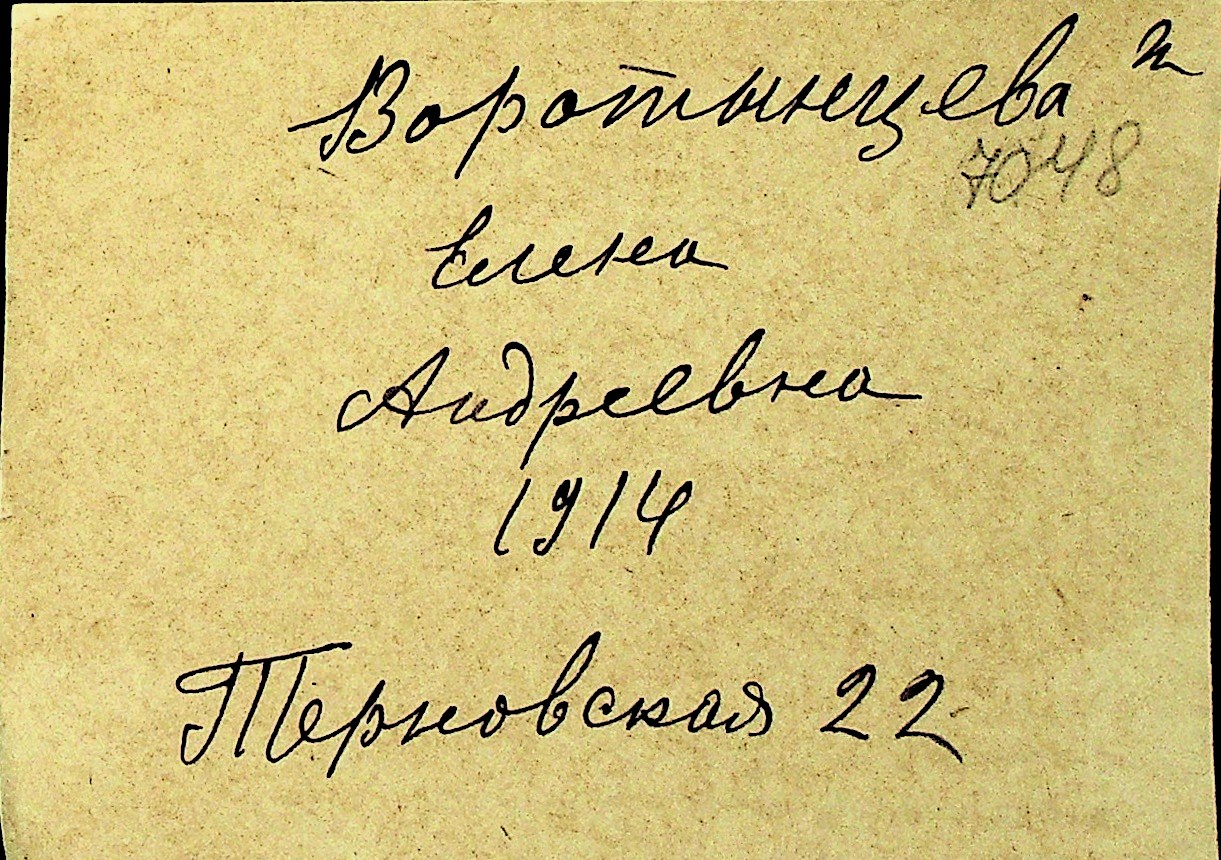 Воротынцева
7048
Елена
Андреевна
1914
Терновская 22